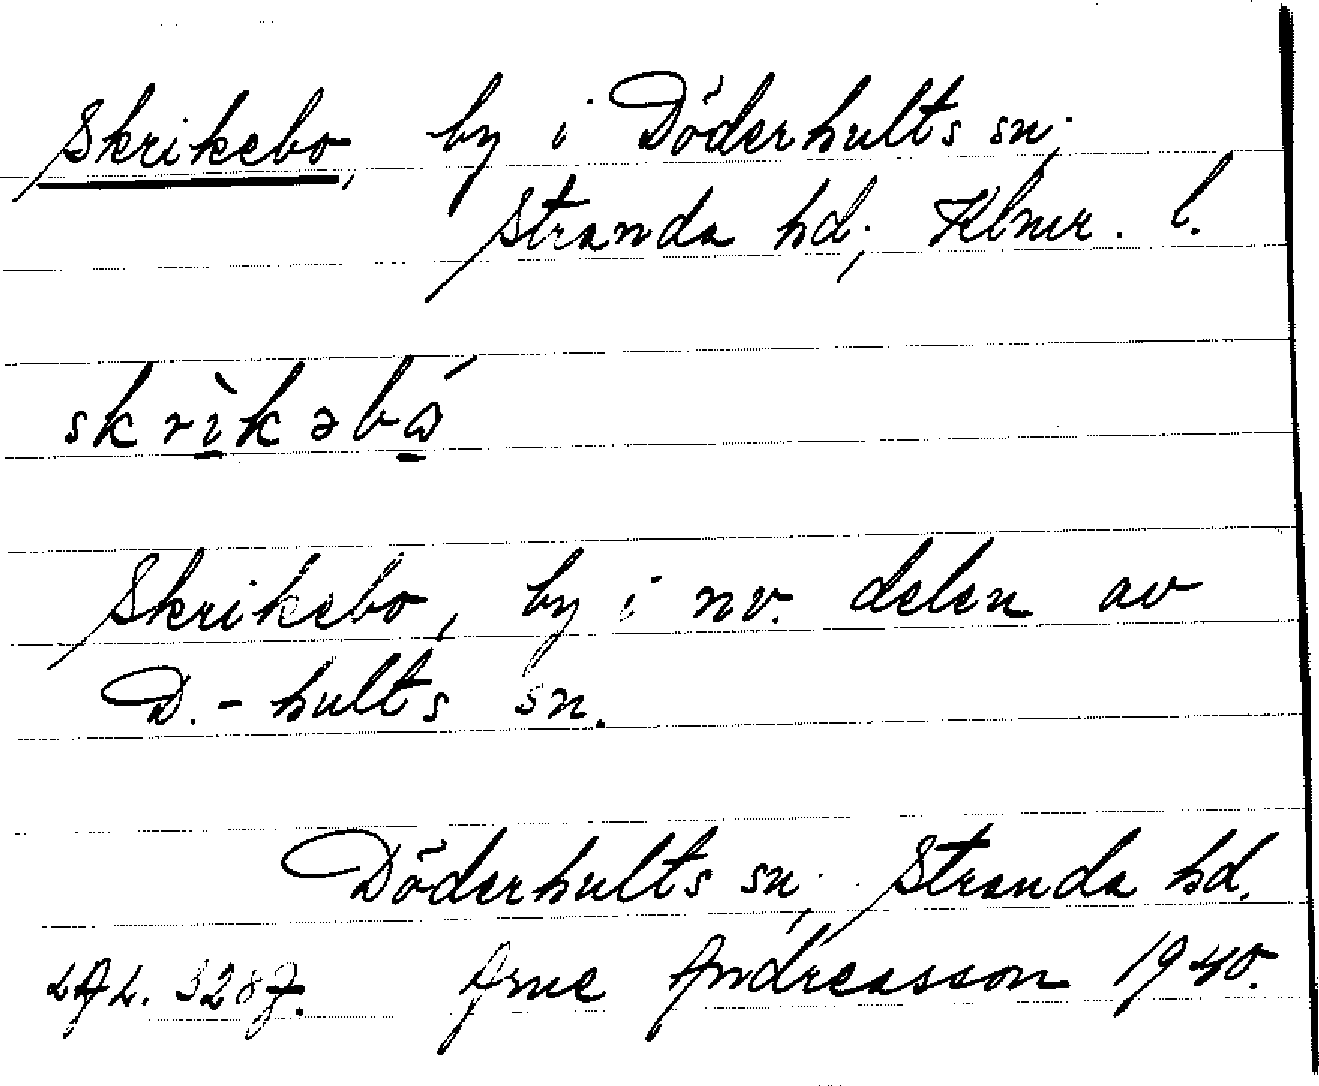 Skrikebo, by i Döderhults sn.,
Stranda hd., Klmr. l.
skrìkəbɷ́
Skrikebo, by i nv. delen av
D.-hults sn.
Döderhults sn., Stranda hd.
LAL. 3287. Arne Andreasson 1940.